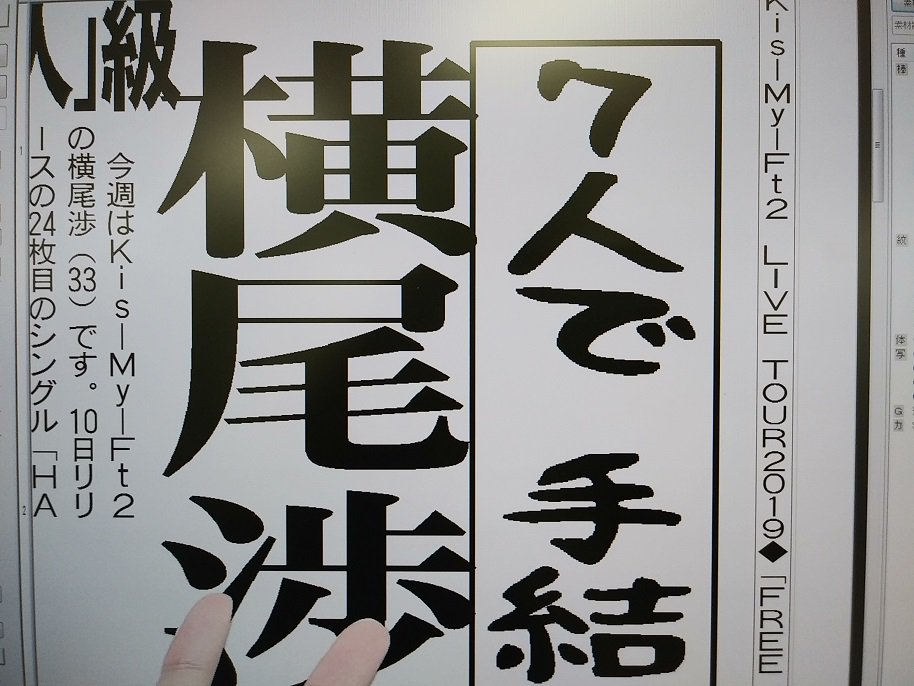 Kis-My-Ft2 LIVE TOUR2019◆「FREE
7人で 手結
横尾渉
人」級
今週はKis-My-Ft2
の横尾渉(33)です。10日リリ
ースの24枚目のシングル「HA